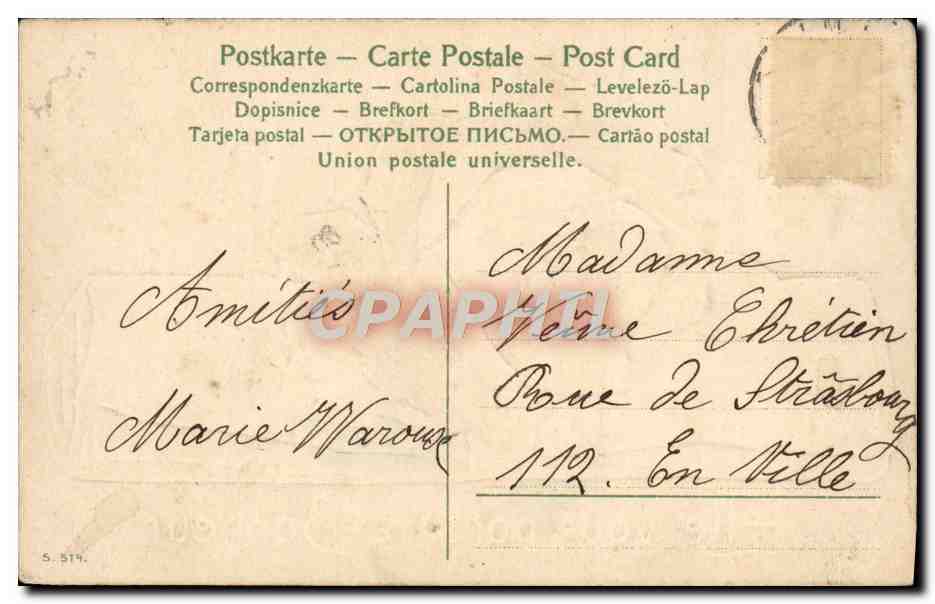 Postkarte – Carte Postale – Post Card
Correspondenzkarte — Cartolina Postale — Levelező-Lap
Dopisnice — Brefkort — Briefkaart — Brevkort
Tarjeta postal — ОТКРЫТОЕ ПИСЬМО. — Cartão postal
Union postale universelle.
Amitiés
Marie
Madame
Veûve Chrétien
Rue de Strasbourg
112. En Ville
CPAPHIL
S. 574.